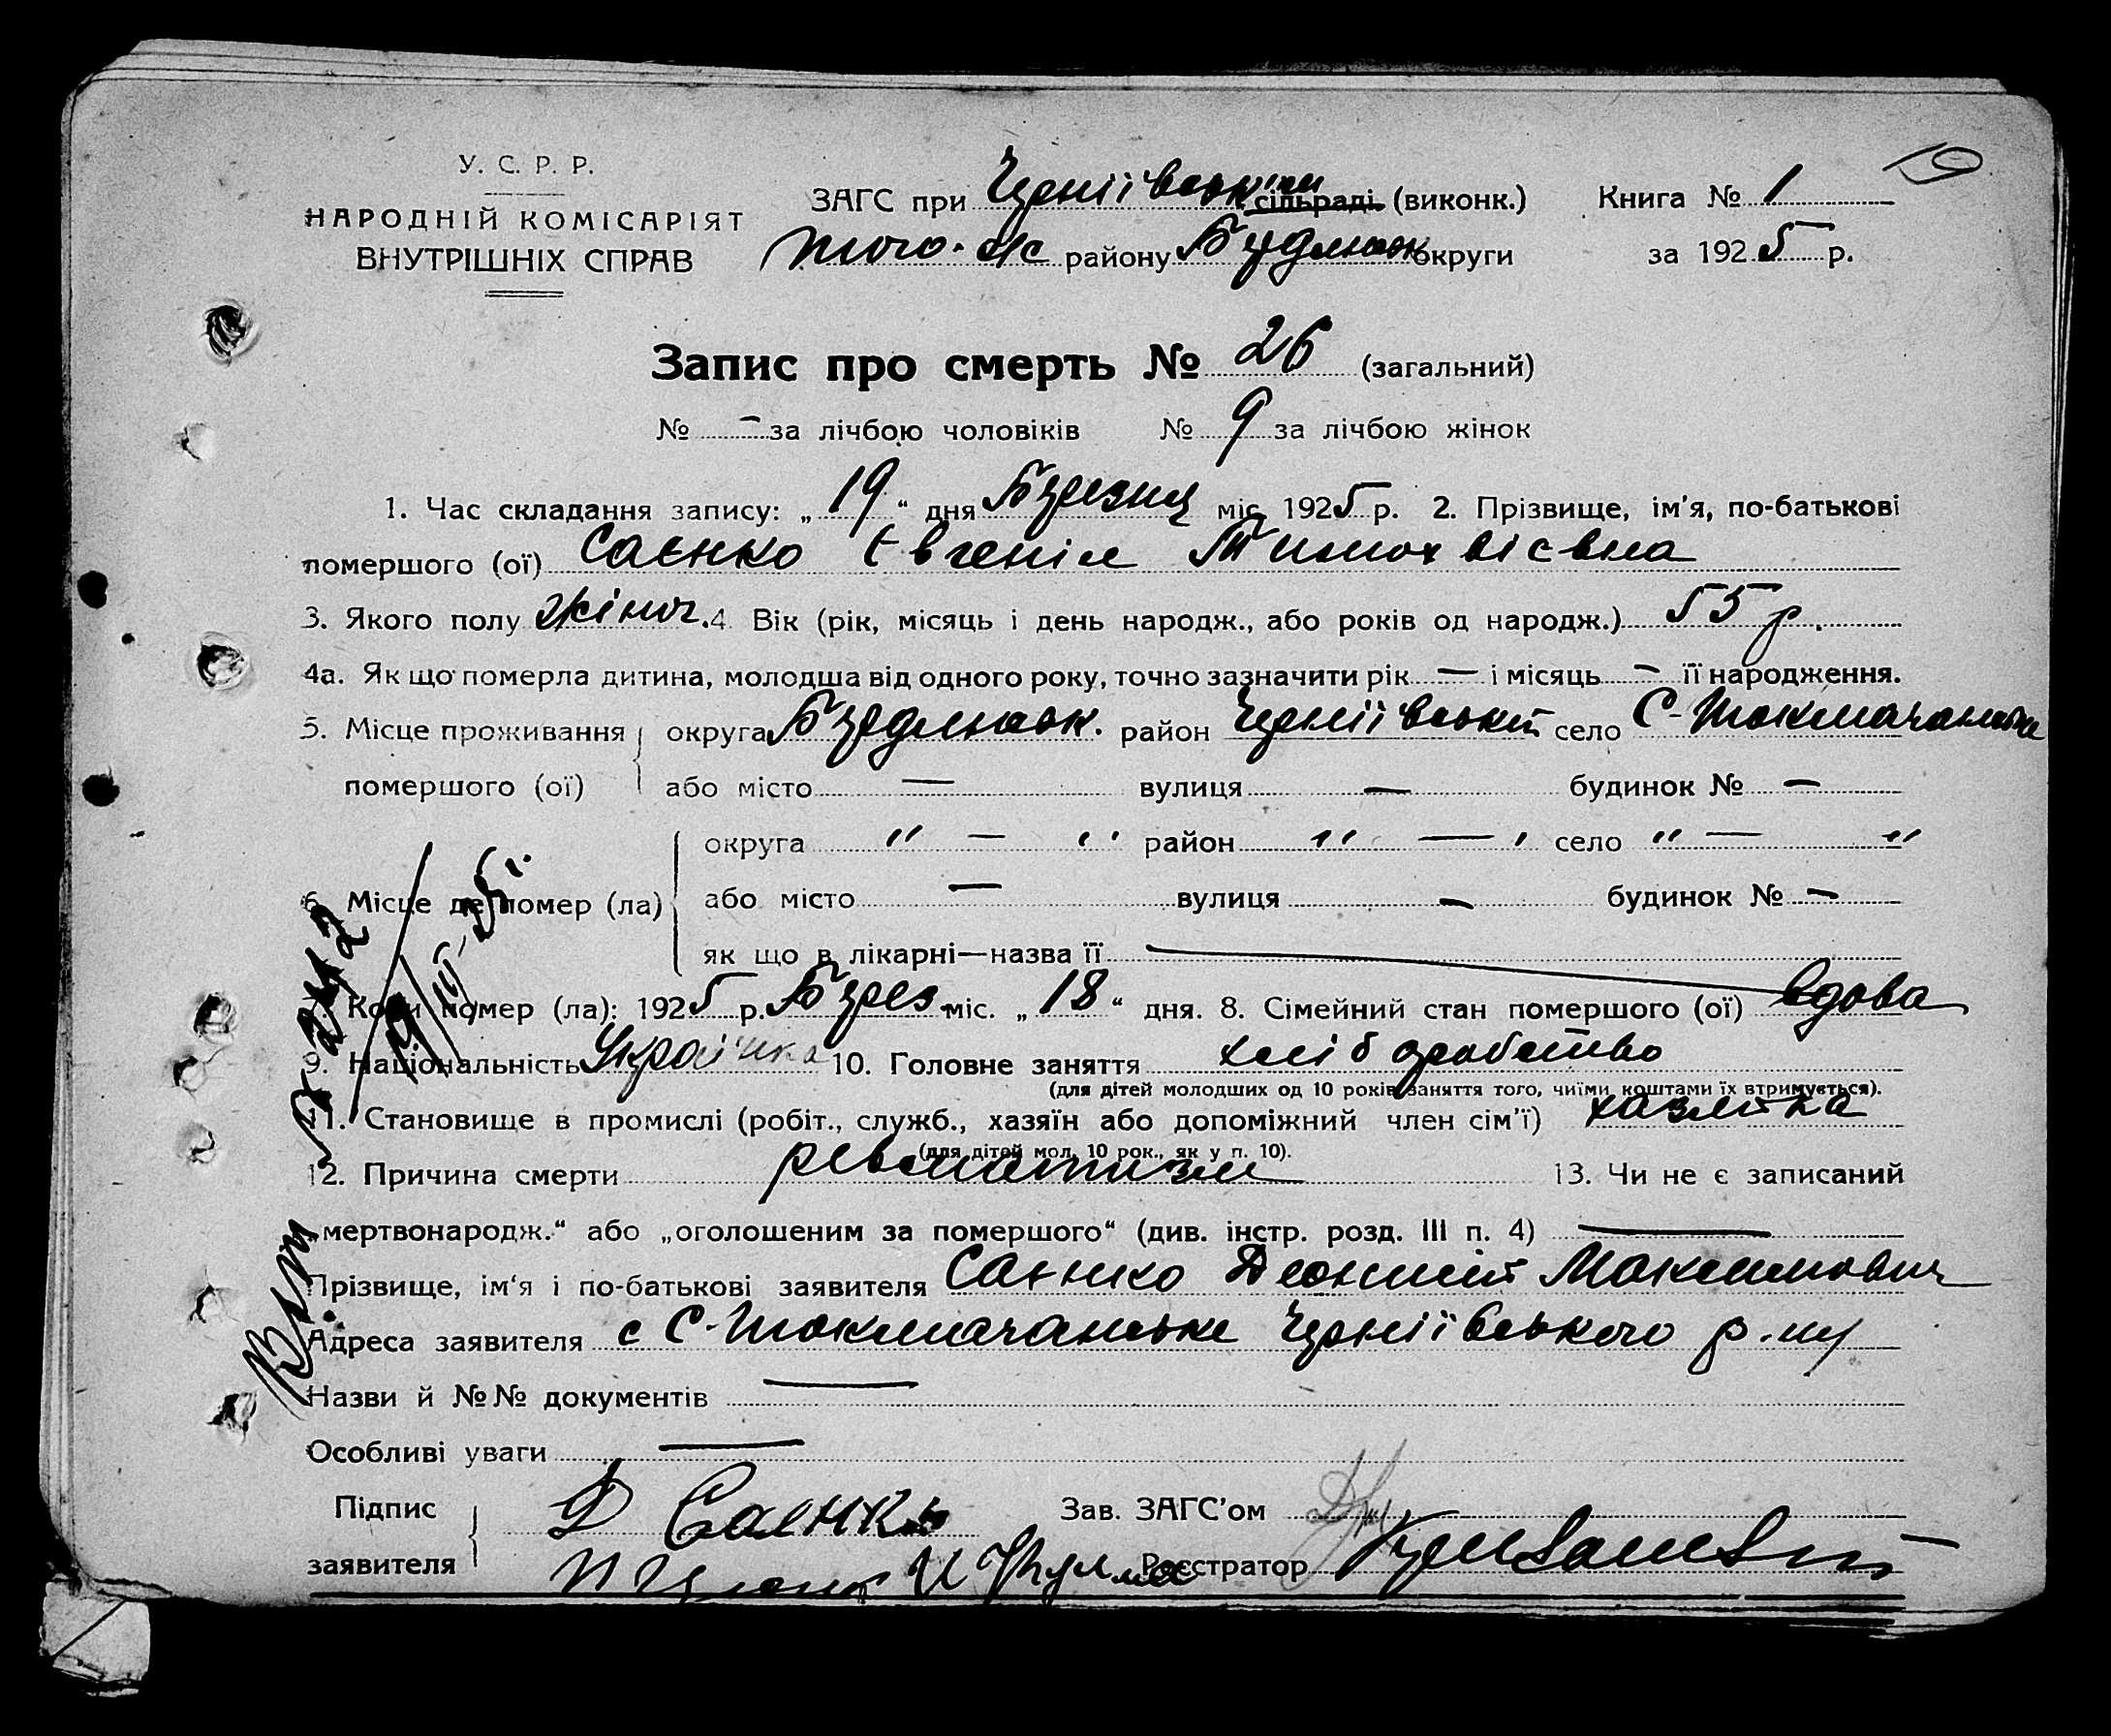 19
У. С. Р. Р.
НАРОДНІЙ КОМІСАРІЯТ
ВНУТРІШНІХ СПРАВ
ЗАГС при Черніївськім сільраді (виконк.)
того-ж району Бердянськ округи
Книга № 1
за 1925 р.
Запис про смерть № 26 (загальний)
№ - за лічбою чоловіків № 9 за лічбою жінок
1. Час складання запису: „19“ дня Березня міс. 1925 р. 2. Прізвище, ім'я, по-батькові
помершого (ої) Саєнко Євгенія Тимохвієвна
3. Якого полу жіноч. 4 Вік (рік, місяць і день народж., або років од народж.) 55 р.
4а. Як що померла дитина, молодша від одного року, точно зазначити рік — і місяць - її народження.
5. Місце проживання помершого (ої) округа Бердянськ. район Черніївський село С-Токмачанське
або місто — вулиця — будинок № —
6. Місце де помер (ла) округа " — " район " — " село " — "
або місто — вулиця - будинок № -
як що в лікарні—назва її
7. Коли помер (ла): 1925 р. Берез. міс. „18“ дня. 8. Сімейний стан помершого (ої) вдова
9. Національність Українка 10. Головне заняття хліборобство
(для дітей молодших од 10 років заняття того, чиїми коштами їх втримується).
11. Становище в промислі (робіт., служб., хазяїн або допоміжний член сім'ї) хазяйка
(для дітей мол. 10 рок., як у п. 10).
12. Причина смерти ревматизм 13. Чи не є записаний
„мертвонародж.“ або „оголошеним за помершого“ (див. інстр. розд. III п. 4) —
Прізвище, ім'я і по-батькові заявителя Саєнко Деонисій Максимович
Адреса заявителя с С-Токмачанське Черніївського р-ну
Назви й №№ документів —
Особливі уваги —
Підпис заявителя Д Саенко
Зав. ЗАГС'ом
Реєстратор